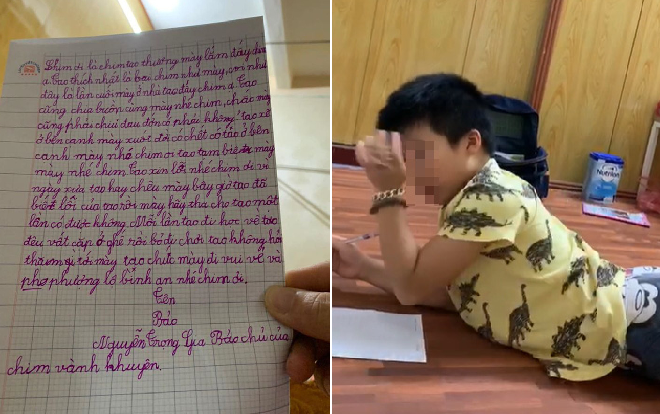 chim ơi là chim tao thương mày lắm đấy
ạ. Tao thích nhất là bài chim nhà mày, với như
đây là lần cuối mày ở nhà tao đấy chim ạ. Tao
cũng chia buồn cùng mày nhé chim, chắc mày
cũng phải chịu đau đớn có phải không? tao sẽ
ở bên cạnh mày suốt đời có chết có tao ở bên
cạnh mày nhá chim ơi tao tạm biệt mày
mày nhé chim. Tao xin lỗi nhé chim ơi vì
ngày xưa tao hay chêu mày bây giờ tao đã
biết lỗi của tao rồi mày hãy tha cho tao một
lần có được không. Mỗi lần tao đi học về tao
đều vất cặp ở ghế rồi bỏ đi chơi tao không hỏi
thăm gì tới mày. tao chúc mày đi vui vẻ và
phơ phướng lộ bình an nhé chim ơi.
Tên
Bảo
Nguyễn Trọng Gia Bảo chủ của
chim vành khuyên.
Nutrilon